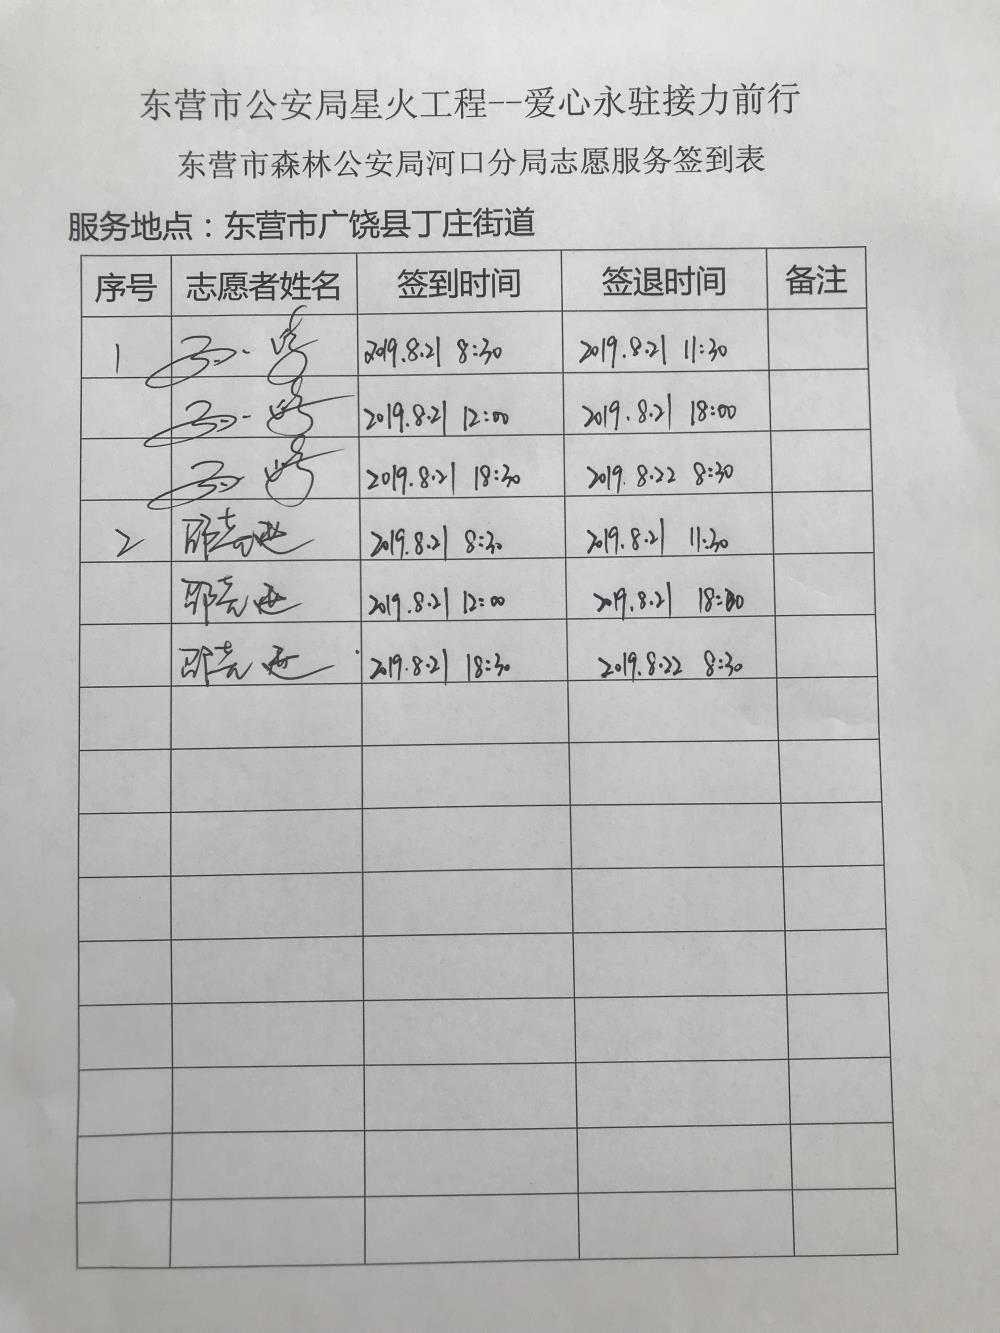 东营市公安局星火工程--爱心永驻接力前行
东营市森林公安局河口分局志愿服务签到表
服务地点：东营市广饶县丁庄街道
序号 志愿者姓名 签到时间 签退时间 备注
1 2019.8.21 8:30 2019.8.21 11:30
2019.8.21 12:00 2019.8.21 18:00
2019.8.21 18:30 2019.8.22 8:30
2 2019.8.21 8:30 2019.8.21 11:30
2019.8.21 12:00 2019.8.21 18:00
2019.8.21 18:30 2019.8.22 8:30